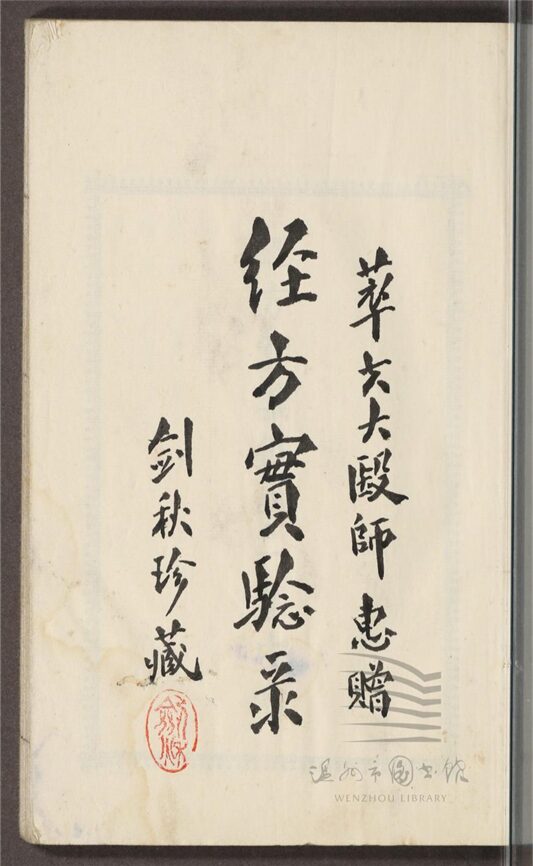 萃六大殹師惠贈
经方實騐录
剑秋珍藏
劍秋
温州市图书馆
WENZHOU LIBRARY